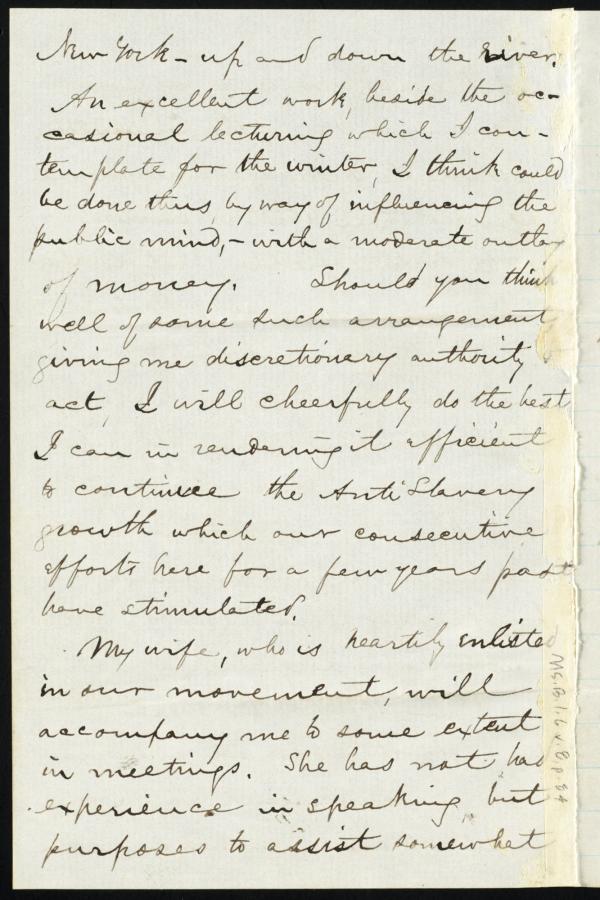 New York – up and down the river.
An excellent work, beside the oc-
casional lecturing which I con-
template for the winter, I think could
be done thus, by way of influencing the
public mind, – with a moderate outlay
of money. Should you think
well of some such arrangement
giving me discretionary authority
act, I will cheerfully do the best
I can in rendering it efficient
to continue the Anti Slavery
growth which our consecutive
efforts here for a few years past
have stimulated.
My wife, who is heartily enlisted
in our movement, will
accompany me to some extent
in meetings. She has not had
experience in speaking, but
purposes to assist somewhat